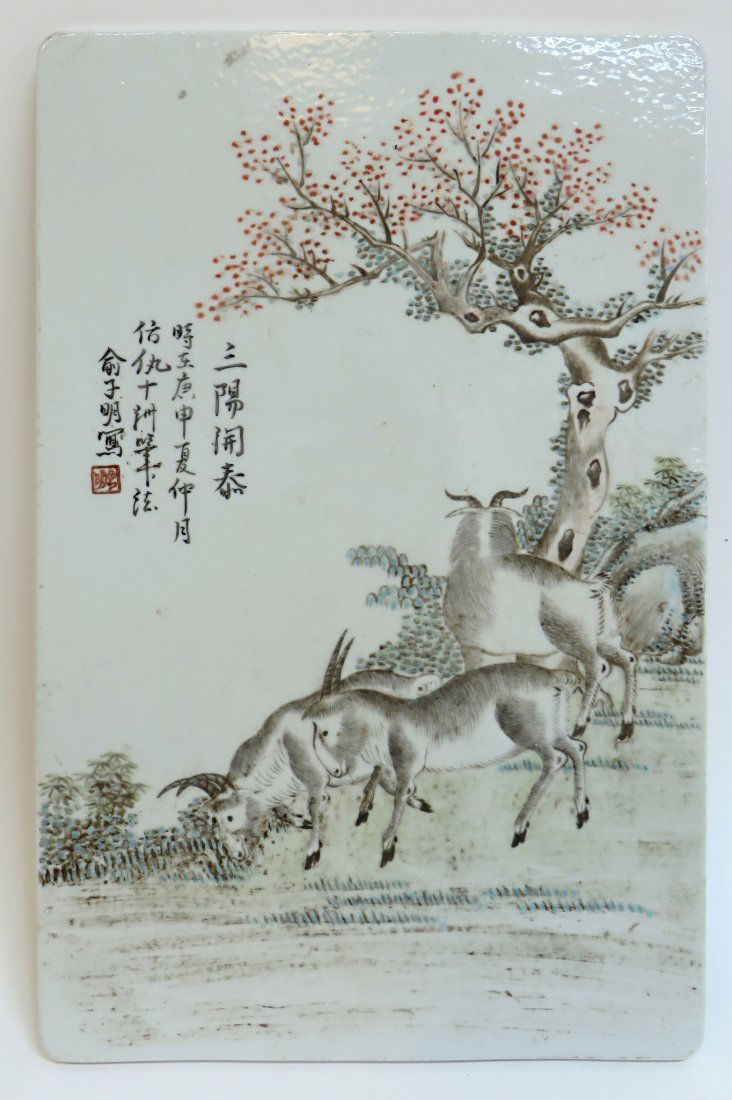 三陽開泰
時在庚申夏仲月
仿仇十洲筆法
俞子明寫